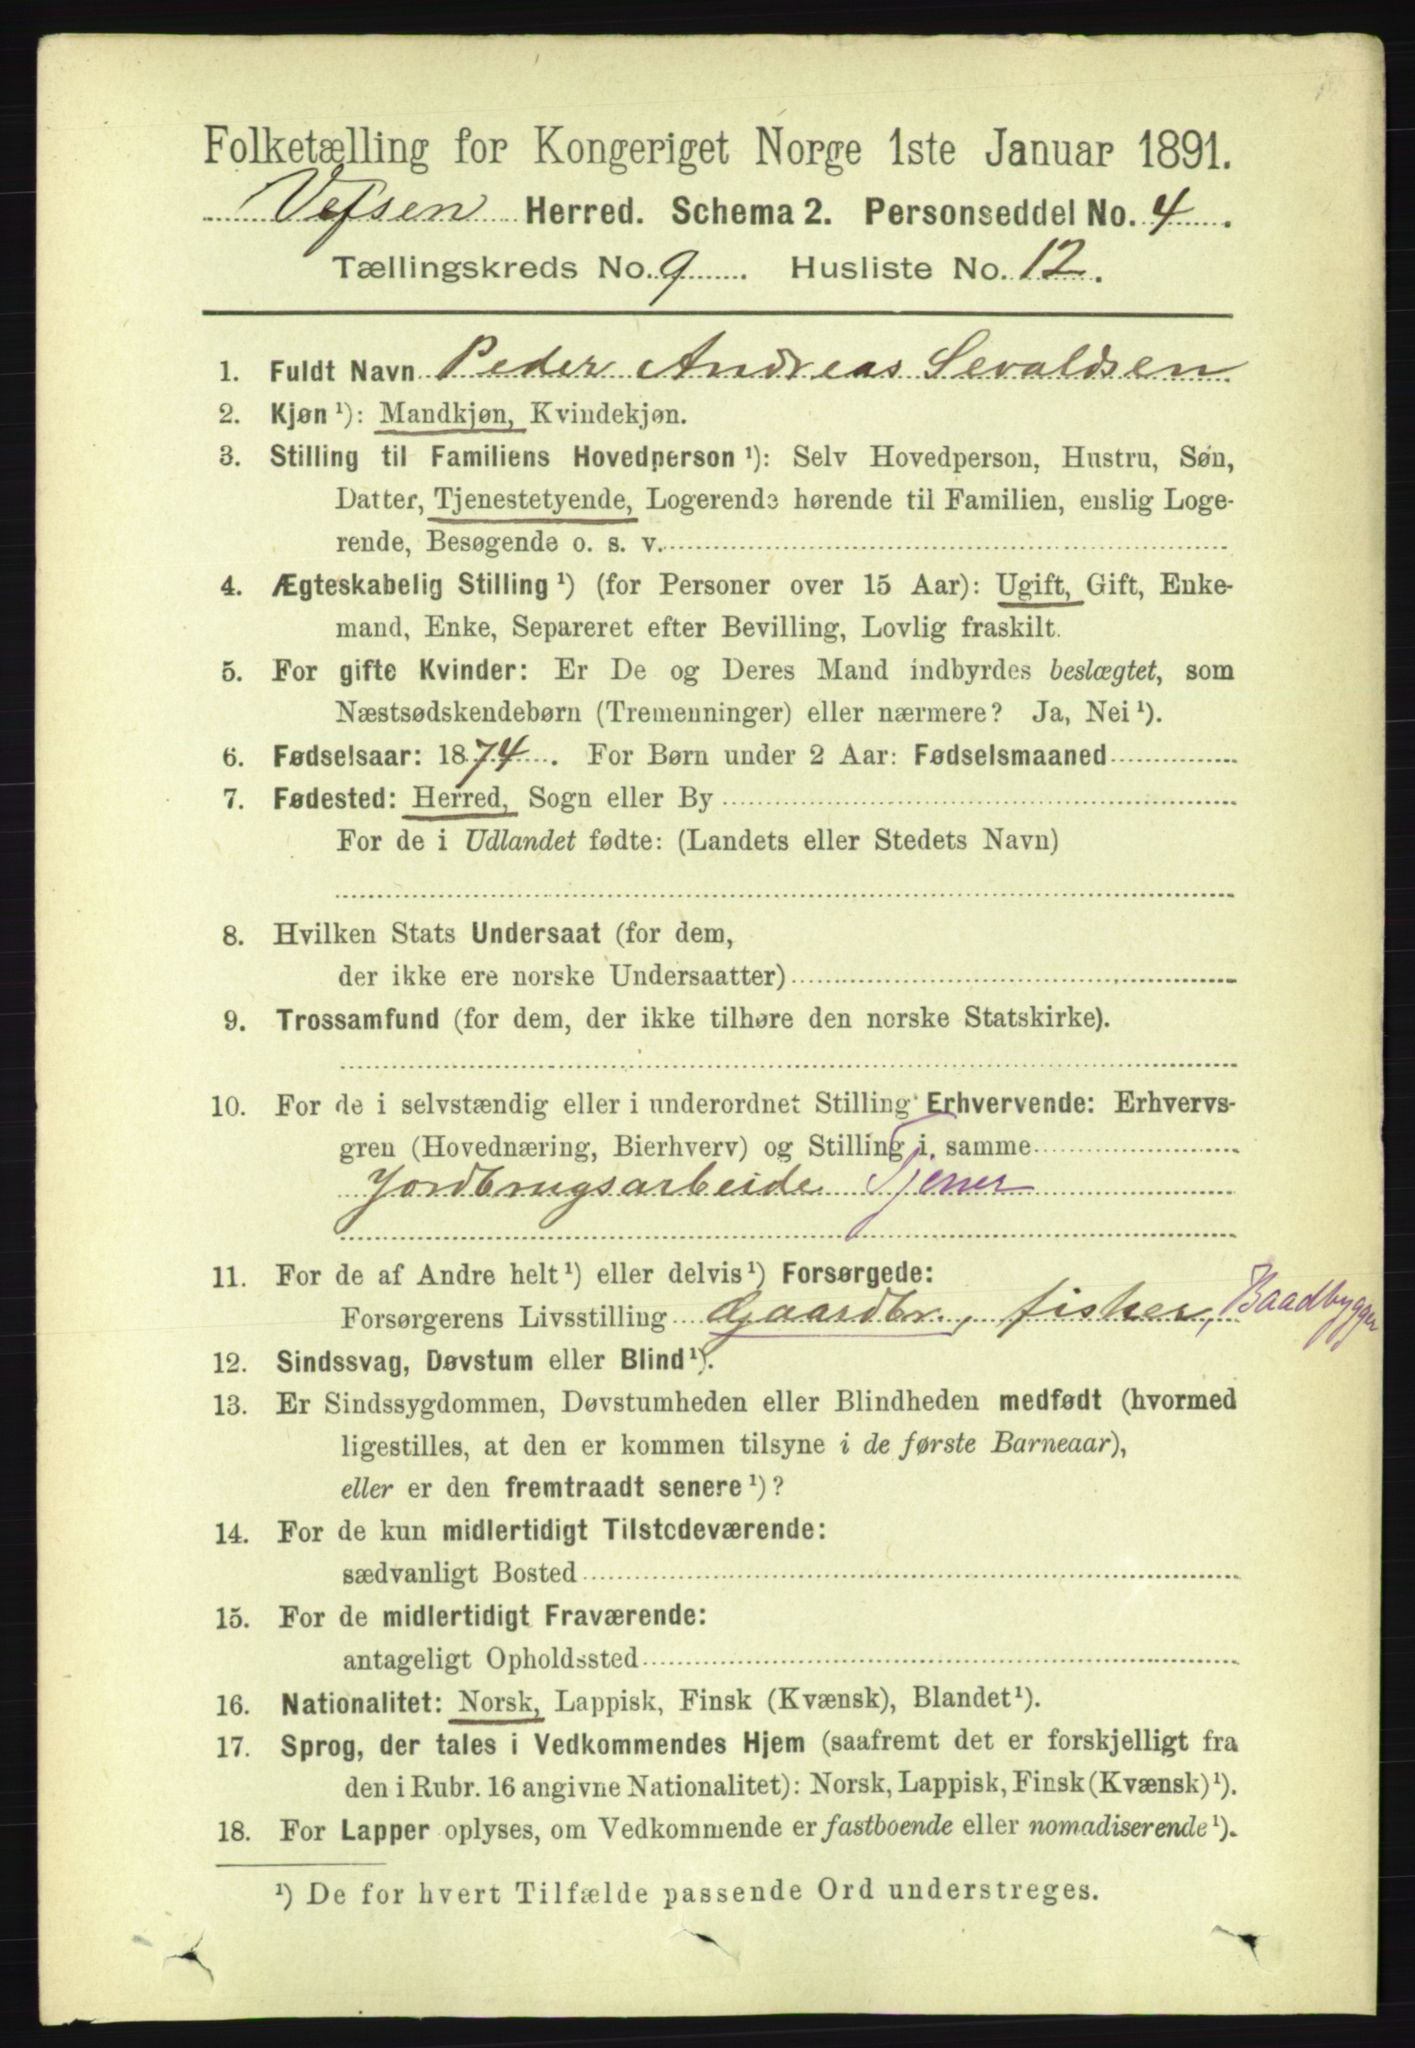 Folketælling for Kongeriget Norge 1ste Januar 1891.
Vefsen Herred. Schema 2. Personseddel No. 4.
Tællingskreds No. 9. Husliste No. 12.
1. Fuldt Navn Peder Andreas Sevaldsen
2. Kjøn ¹): Mandkjøn, Kvindekjøn.
3. Stilling til Familiens Hovedperson ¹): Selv Hovedperson, Hustru, Søn,
Datter, Tjenestetyende, Logerende hørende til Familien, enslig Loge-
rende, Besøgende o. s. v.
4. Ægteskabelig Stilling ¹) (for Personer over 15 Aar): Ugift, Gift, Enke-
mand, Enke, Separeret efter Bevilling, Lovlig fraskilt.
5. For gifte Kvinder: Er De og Deres Mand indbyrdes beslægtet, som
Næstsødskendebørn (Tremenninger) eller nærmere? Ja, Nei ¹).
6. Fødselsaar: 1874. For Børn under 2 Aar: Fødselsmaaned
7. Fødested: Herred, Sogn eller By
For de i Udlandet fødte: (Landets eller Stedets Navn)
8. Hvilken Stats Undersaat (for dem,
der ikke ere norske Undersaatter)
9. Trossamfund (for dem, der ikke tilhøre den norske Statskirke).
10. For de i selvstændig eller i underordnet Stilling Erhvervende: Erhvervs-
gren (Hovednæring, Bierhverv) og Stilling i samme
Jordbrugsarbeide Tjener
11. For de af Andre helt ¹) eller delvis ¹) Forsørgede:
Forsørgerens Livsstilling Gaardbr., fisker, Baadbygger
12. Sindssvag, Døvstum eller Blind ¹).
13. Er Sindssygdommen, Døvstumheden eller Blindheden medfødt (hvormed
ligestilles, at den er kommen tilsyne i de første Barneaar),
eller er den fremtraadt senere ¹)?
14. For de kun midlertidigt Tilstedeværende:
sædvanligt Bosted
15. For de midlertidigt Fraværende:
antageligt Opholdssted
16. Nationalitet: Norsk, Lappisk, Finsk (Kvænsk), Blandet ¹).
17. Sprog, der tales i Vedkommendes Hjem (saafremt det er forskjelligt fra
den i Rubr. 16 angivne Nationalitet): Norsk, Lappisk, Finsk (Kvænsk) ¹).
18. For Lapper oplyses, om Vedkommende er fastboende eller nomadiserende ¹).
¹) De for hvert Tilfælde passende Ord understreges.